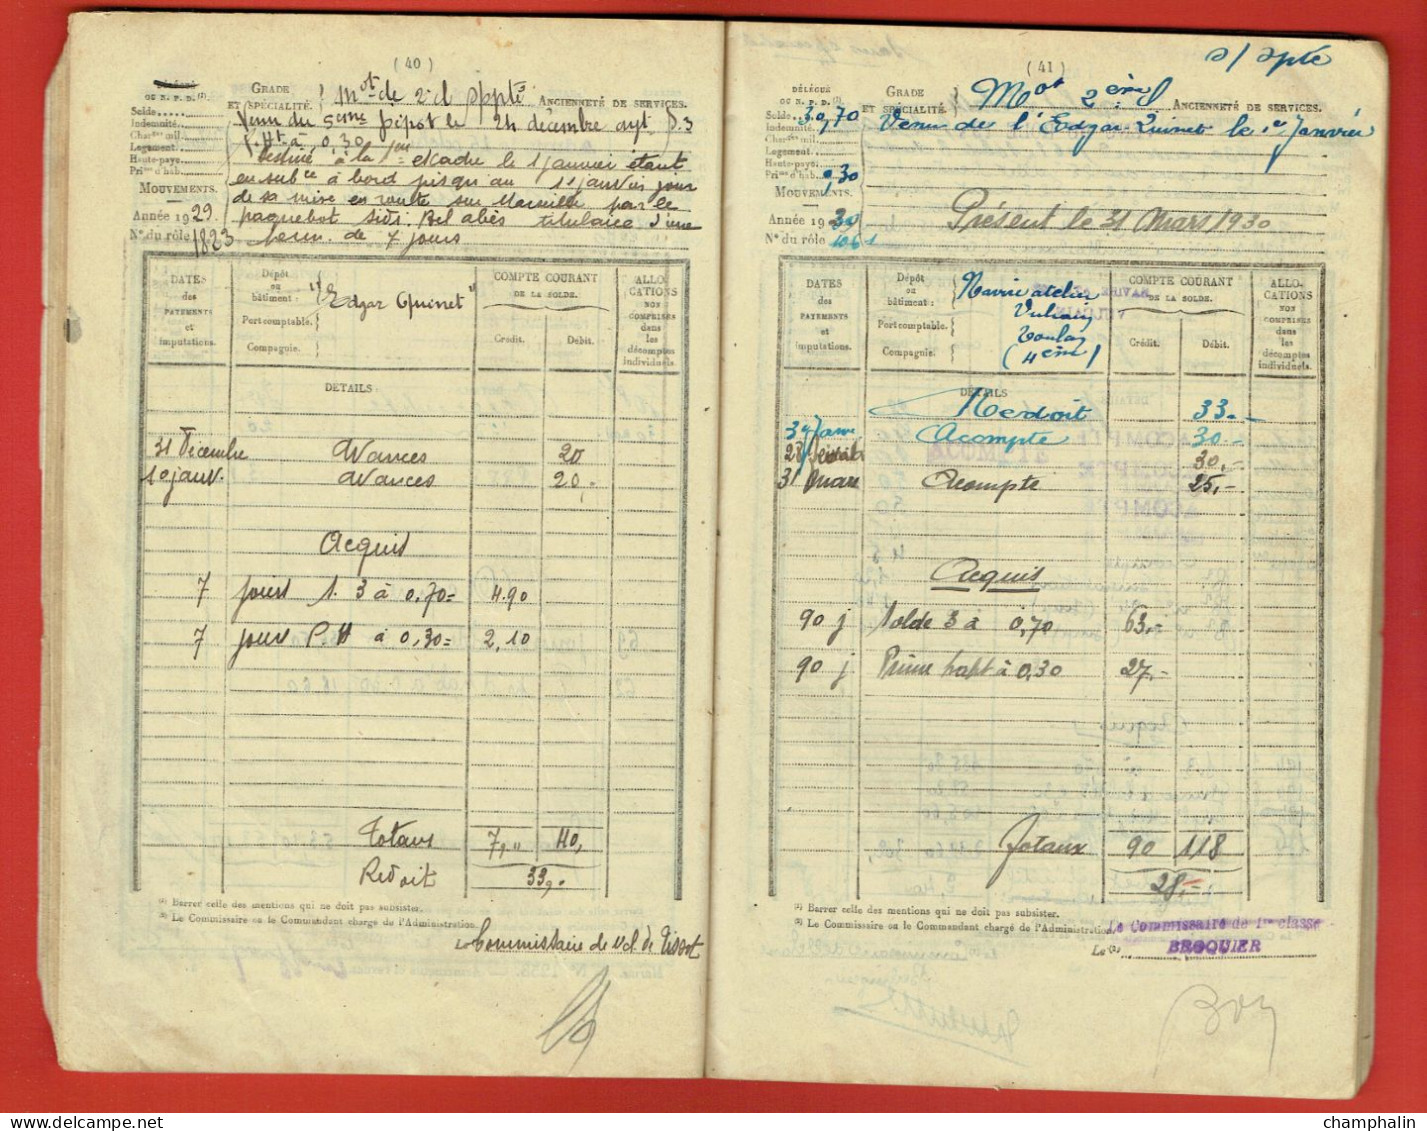 ( 40 )
DÉLÉGUÉ
OU N. P. D. (1).
GRADE
ET SPÉCIALITÉ.
Mot de 2e cl
ANCIENNETÉ DE SERVICES.
Solde
Indemnité
Char. mil.
Logement
Haute-paye
Pri. d'hab.
Venu du 5ème Dépôt le 24 décembre
P. Ht à 0,30
Destiné à la 1ère escadre le 1 janvier étant
en subce à bord jusqu'au 11 janvier jour
de sa mise en route sur Marseille par le
paquebot Sidi Bel Abès titulaire d'une
perm. de 7 jours
MOUVEMENTS.
Année 1929.
N° du rôle 1823
DATES des PAYEMENTS et imputations.
Dépôt ou bâtiment :
"Edgar Quinet"
Port comptable.
Compagnie.
COMPTE COURANT
DE LA SOLDE.
Crédit.
Débit.
ALLOCATIONS NON COMPRISES dans les décomptes individuels.
DÉTAILS
31 Décembre Avances 20
10 janv. Avances 20,-
Acquis
7 jours S. 3 à 0,70= 4.90
7 jours P.H à 0,30= 2,10
Totaux 7," 40,
Redoit 33,-
(1) Barrer celle des mentions qui ne doit pas subsister.
(2) Le Commissaire ou le Commandant chargé de l'Administration.
Le Commissaire de
( 41 )
DÉLÉGUÉ
OU N. P. D. (1).
GRADE
ET SPÉCIALITÉ.
Mot 2ème Cl
ANCIENNETÉ DE SERVICES.
Solde 3 0,70
Indemnité
Char. mil.
Logement
Haute-paye
Pri. d'hab. 0,30
Venu de l'Edgar-Quinet le 1er Janvier
MOUVEMENTS.
Année 1930
N° du rôle 1061
Présent le 31 Mars 1930
DATES des PAYEMENTS et imputations.
Dépôt ou bâtiment :
Navire atelier
Vulcain
Toulon
(4ème)
Port comptable.
Compagnie.
COMPTE COURANT
DE LA SOLDE.
Crédit.
Débit.
ALLOCATIONS NON COMPRISES dans les décomptes individuels.
DÉTAILS
Redoit 33.-
Janv Acompte 30.-
28 30,-
31 Mars Acompte 25,-
Acquis
90 j Solde 3 à 0,70 63,-
90 j Prime habt à 0,30 27,-
Totaux 90 118
28,-
(1) Barrer celle des mentions qui ne doit pas subsister.
(2) Le Commissaire ou le Commandant chargé de l'Administration.
Le Commissaire de 1re classe
Le (2)
BROQUIER
champhalin
delcampe.net